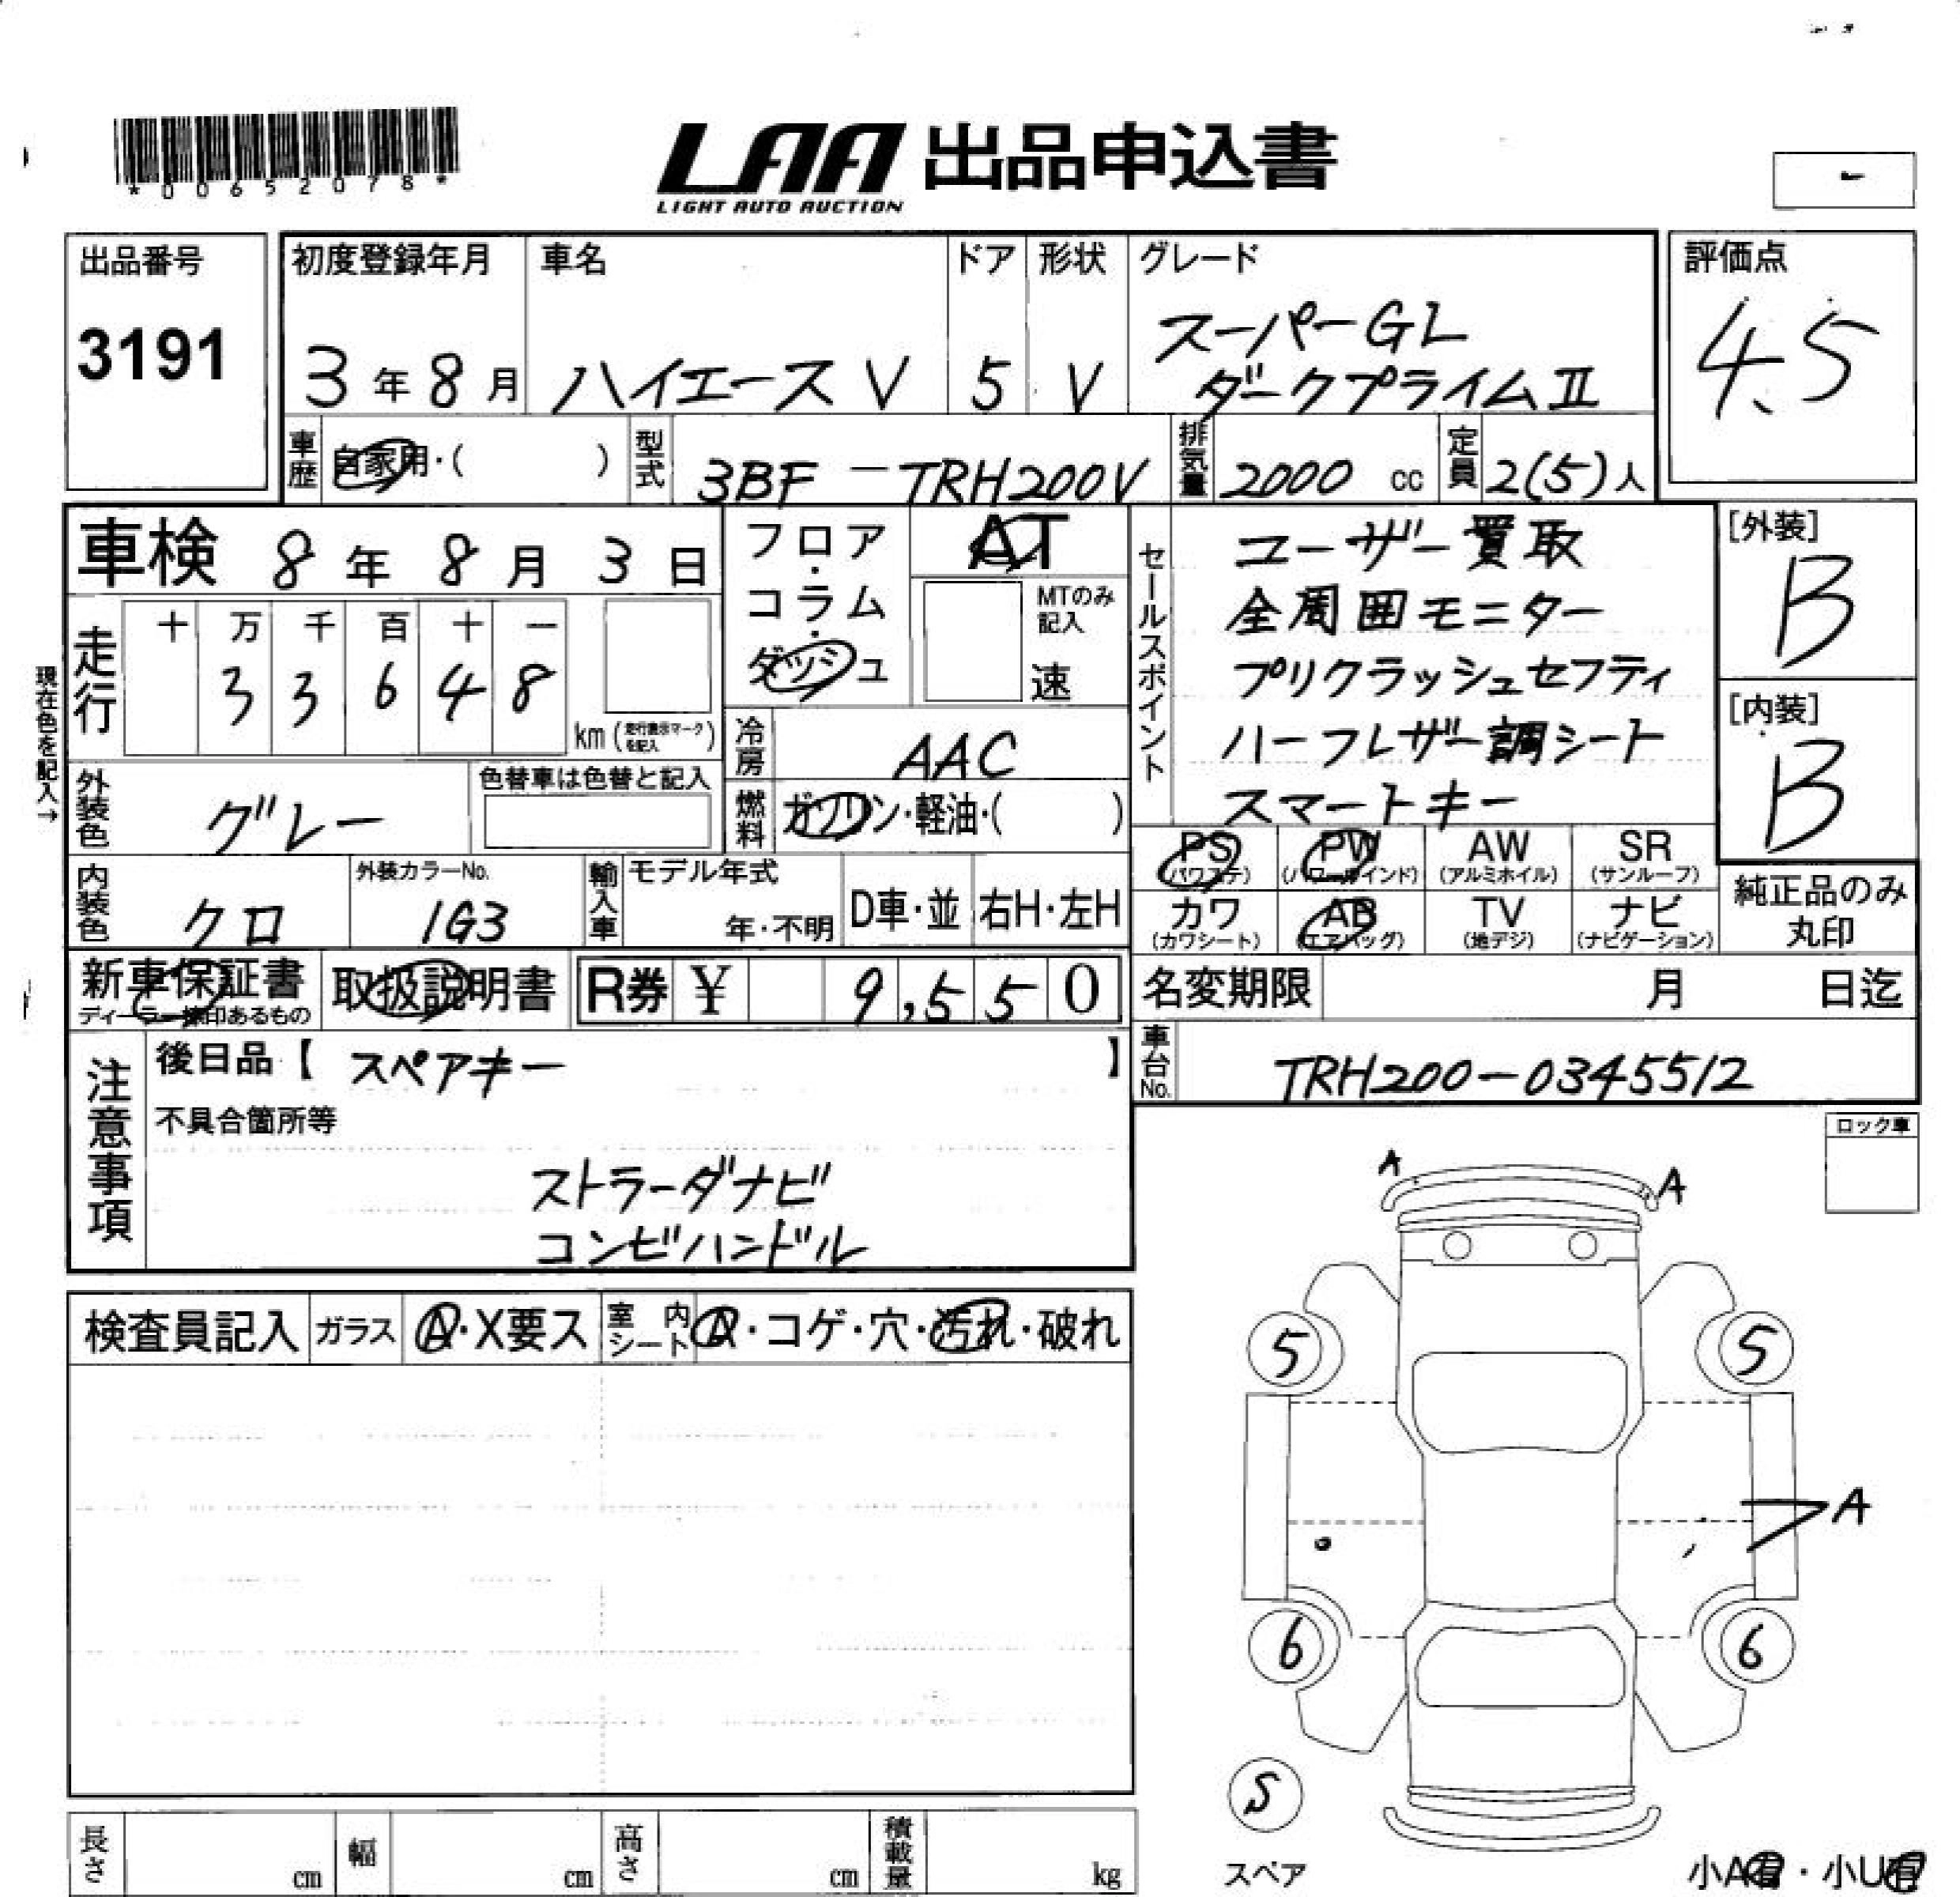 *00652078*
LAA 出品申込書
LIGHT AUTO AUCTION
出品番号
3191
初度登録年月
3年8月
車名
ハイエースV
ドア
5
形状
V
グレード
スーパーGL
ダークプライムII
評価点
4.5
車歴 自家用・( )
型式 3BF-TRH200V
排気量 2000 cc
定員 2(5)人
車検 8年8月3日
フロア・コラム・ダッシュ
AT
MTのみ記入
速
走行
十 万 千 百 十 一
3 3 6 4 8
km(走行表示マークを記入)
現在色を記入→
冷房 AAC
燃料 ガソリン・軽油・( )
外装色 グレー
色替車は色替と記入
内装色 クロ
外装カラーNo.
1G3
輸入車
モデル年式
年・不明
D車・並
右H・左H
セールスポイント
ユーザー買取
全周囲モニター
プリクラッシュセフティ
ハーフレザー調シート
スマートキー
[外装]
B
[内装]
B
PS (パワステ)
PW (パワーウインド)
AW (アルミホイル)
SR (サンルーフ)
カワ (カワシート)
AB (エアバッグ)
TV (地デジ)
ナビ (ナビゲーション)
純正品のみ
丸印
新車保証書
ディーラー捺印あるもの
取扱説明書
R券 ¥ 9,550
名変期限 月 日迄
車台No. TRH200-0345512
注意事項
後日品【 スペアキー 】
不具合箇所等
ストラーダナビ
コンビハンドル
ロック車
検査員記入
ガラス A・X要ス
室内シート A・コゲ・穴・汚れ・破れ
A
A
5
5
A
6
6
5
スペア
小A有・小U有
長さ cm
幅 cm
高さ cm
積載量 kg